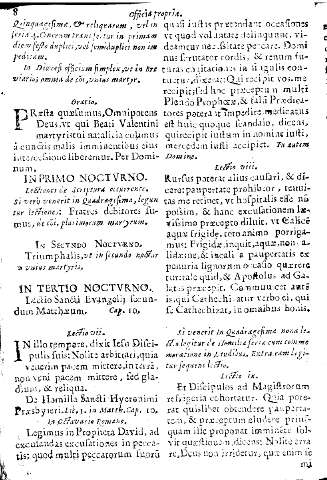 8 Officia propria.
Quinquagesimæ, & reliquarum, vel in
feria 4. Cinerum transfertur in primam
diem festo duplici, vel semiduplici non im
peditam.
In Diœcesi officium simplex, ut in bre
viario, omnia de cõi, unius martyr.
Oratio.
PRæsta quæsumus, Omnipotens
Deus, ut qui Beati Valentini
martyris tui natalitia colimus
à cunctis malis imminentibus eius
intercessione liberemur. Per Domi-
num,
IN PRIMO NOCTVRNO.
Lectiones de Scriptura occurrente.
Si verò venerit in Quadragesima, legun
tur lectiones: Fratres debitores su-
mus, de cõi, plurimorum martyrum.
IN SECVNDO NOCTVRNO.
Triumphalis, ut in secundo noctur
o unius martyris.
IN TERTIO NOCTVRNO.
Lectio Sancti Evangelij secun-
dum Matthæum. Cap. 10.
Lectio vii.
IN illo tempore, dixit Iesus Disci-
pulis suis: Nolite arbitrari, quia
venerim pacem mittere, in terrã,
non veni pacem mittere, sed gla-
dium, & reliqua.
De Homilia Sancti Hyeronimi
Presbyteri. Li. 1. in Matth. Cap. 10.
In Octavario Romano.
Legimus in Propheta David, ad
excusandas excusationes in pecca-
tis: quod multi peccatorum suorũ
quasi iustas prætendant occasiones
ut quod voluntate delinquunt, vi-
deantur necessitate peccare. Domi
nus scrutator cordis, & renum fu-
turas cogitationes in singulis con-
tuetur, dixerat: Qui recipit vos, me
recipit: sed hoc præceptum multi
Pseudo Prophetæ, & falsi Prædica-
tores poterant impedire, medicatus
est huic quoque scandalo, dicens,
qui recipit iustum in nomine iusti,
mercedem iusti accipiet. Tu autem
Domine.
Lectio viii.
Rursus poterat alius causari, & di-
cere: paupertate prohibeor, tenui-
tas me retinet, ut hospitalis esse nõ
possim, & hanc excusationem læ-
vissimo præcepto diluit, ut Calicẽ
aquæ frigidæ, toto animo porriga-
mus: Frigidæ inquit, aquæ, non ca-
lidæ, ne & in calida paupertatis ex
penuria lignorum occasio quærere
tur: tale quid, & Apostolus ad Ga-
latas præcipit. Communicet autẽ
is qui Cathechizatur verbo ei, qui
se Cathechizat, in omnibus bonis.
Si venerit in Quadragesima nona le-
ctio legitur de Homilia feriæ cum comme
moratione in Laudibus. Extra eam legi-
tur sequens lectio.
Lectio ix.
Et Discipulos ad Magistrorum
refrigeria cohortatur. Quia pote-
rat quislibet obtendere paupertа-
tem, & præceptum eludere prius-
quam ille proponat imminẽs sol-
vit quæstionem, dicens: Nolite erra
re, Deus non irridetur, quæ enim se
mi